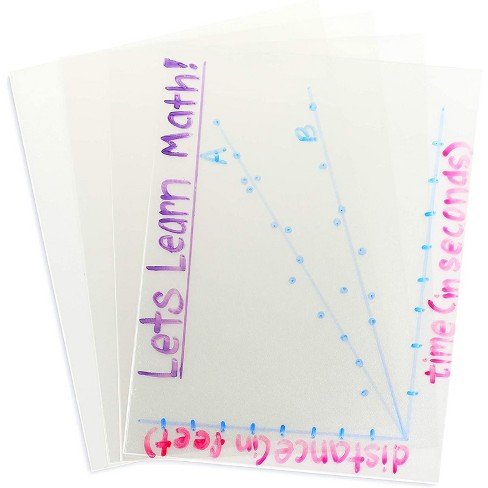 Lets Learn Math!
A.
B
time (in seconds)
distance (in feet)